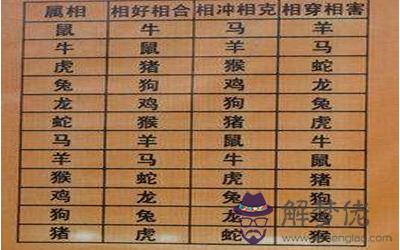 属相 相好相合 相冲相克 相穿相害
鼠 牛 马 羊
牛 鼠 羊 马
虎 猪 猴 蛇
兔 狗 鸡 龙
龙 鸡 狗 兔
蛇 猴 猪 虎
马 羊 鼠 牛
羊 马 牛 鼠
猴 蛇 虎 猪
鸡 龙 兔 狗
狗 兔 龙 鸡
猪 虎 蛇 猴
解梦佬
jiemenglao.com